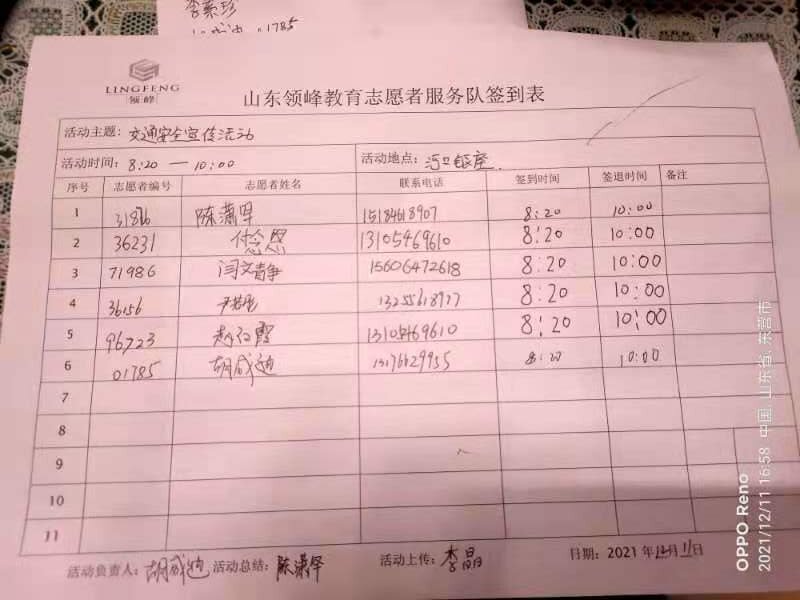 李素珍
01785
LINGFENG
领峰
山东领峰教育志愿者服务队签到表
活动主题：交通安全宣传活动
活动时间：8:20 — 10:00 活动地点：河口银座
序号 志愿者编号 志愿者姓名 联系电话 签到时间 签退时间 备注
1 陈潇早 15184618907 8:20 10:00
2 36231 付念恩 13105469610 8:20 10:00
3 71986 闫文静 15606472618 8:20 10:00
4 36156 8:20 10:00
5 96723 赵红霞 13105469610 8:20 10:00
6 01785 胡咸迪 8:20 10:00
7
8
9
10
11
活动负责人：胡咸迪 活动总结：陈潇 活动上传：李晶 日期：2021年12月11日
OPPO Reno
2021/12/11 16:58 中国, 山东省, 东营市